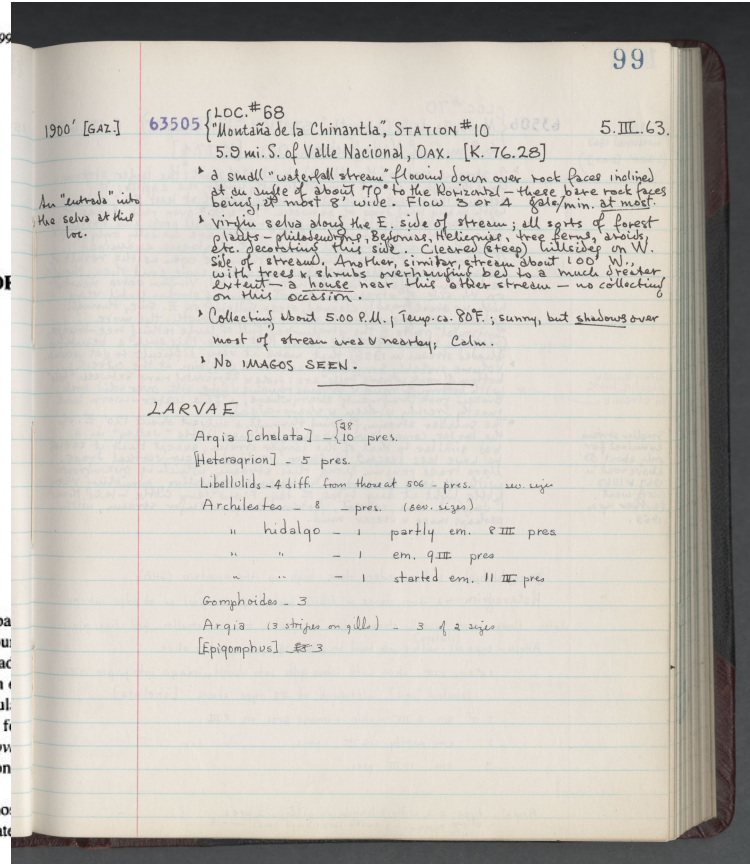 99
LOC. #68
1900' [GAZ.] 63505 "Montaña de la Chinantla", STATION #10 5.III.63.
5.9 mi. S. of Valle Nacional, OAX. [K. 76.28]
a small "waterfall stream" flowing down over rock faces inclined
at an angle of about 70° to the horizontal — these bare rock faces
being, at most 8' wide. Flow 3 or 4 gals/min. at most.
An "entrada" into
the selva at this
loc.
Virgin selva along the E. side of stream; all sorts of forest
plants — philodendrons, Begonias, Heliconias, tree ferns, aroids,
etc. decorating this side. Cleared (steep) hillsides on W.
side of stream. Another, similar, stream about 100' W.,
with trees & shrubs overhanging bed to a much greater
extent — a house near this other stream — no collecting
on this occasion.
Collecting about 5.00 P.M.; Temp. ca. 80°F.; sunny, but shadows over
most of stream area & nearby; Calm.
No IMAGOS SEEN.
LARVAE
Argia [chelata] — 10 pres.
[Heteragrion] — 5 pres.
Libellulids — 4 diff. from those at 506 — pres. sev. sizes
Archilestes — 8 — pres. (sev. sizes)
" hidalgo — 1 partly em. 8 III pres
" " — 1 em. 9 III pres
" " — 1 started em. 11 III pres
Gomphoides — 3
Argia (3 stripes on gills) — 3 of 2 sizes
[Epigomphus] 3